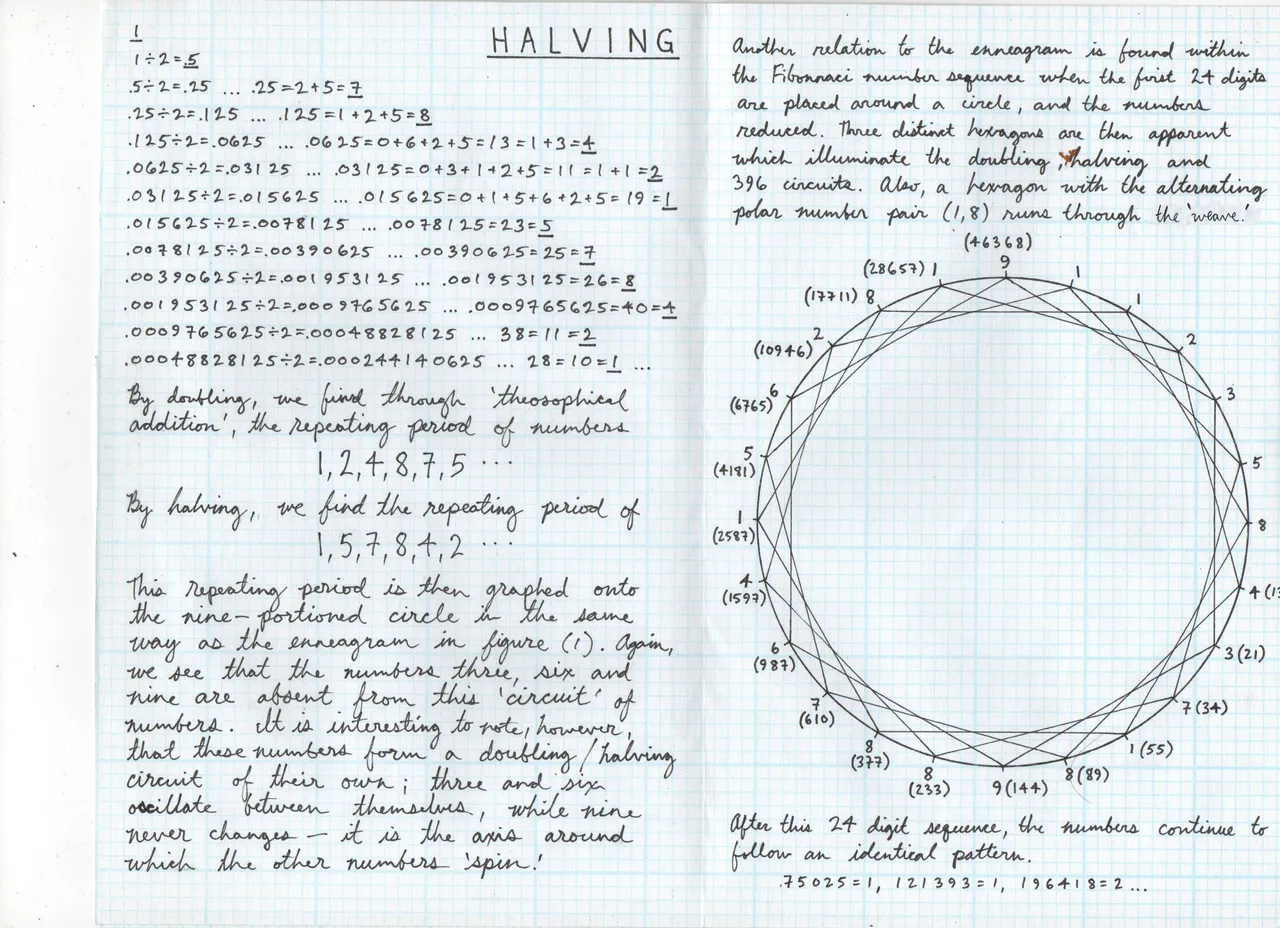 HALVING
1
1÷2=.5
.5÷2=.25 ... .25=2+5=7
.25÷2=.125 ... .125=1+2+5=8
.125÷2=.0625 ... .0625=0+6+2+5=13=1+3=4
.0625÷2=.03125 ... .03125=0+3+1+2+5=11=1+1=2
.03125÷2=.015625 ... .015625=0+1+5+6+2+5=19=1
.015625÷2=.0078125 ... .0078125=23=5
.0078125÷2=.00390625 ... .00390625=25=7
.00390625÷2=.001953125 ... .001953125=26=8
.001953125÷2=.0009765625 ... .0009765625=40=4
.0009765625÷2=.00048828125 ... 38=11=2
.00048828125÷2=.000244140625 ... 28=10=1 ...
By doubling, we find through 'theosophical
addition', the repeating period of numbers
1,2,4,8,7,5 ...
By halving, we find the repeating period of
1,5,7,8,4,2 ...
This repeating period is then graphed onto
the nine-portioned circle in the same
way as the enneagram in figure (1). Again,
we see that the numbers three, six and
nine are absent from this 'circuit' of
numbers. It is interesting to note, however,
that these numbers form a doubling/halving
circuit of their own; three and six
oscillate between themselves, while nine
never changes – it is the axis around
which the other numbers 'spin.'
Another relation to the enneagram is found within
the Fibonnaci number sequence when the first 24 digits
are placed around a circle, and the numbers
reduced. Three distinct hexagons are then apparent
which illuminate the doubling, halving and
396 circuits. Also, a hexagon with the alternating
polar number pair (1,8) runs through the 'weave.'
(46368)
9
1
1
2
3
5
8
4 (13
3 (21)
7 (34)
1 (55)
8 (89)
9 (144)
8
(233)
8
(377)
7
(610)
6
(987)
4
(1597)
1
(2587)
5
(4181)
6
(6765)
2
(10946)
(17711) 8
(28657) 1
After this 24 digit sequence, the numbers continue to
follow an identical pattern.
.75025=1, 121393=1, 196418=2 ...